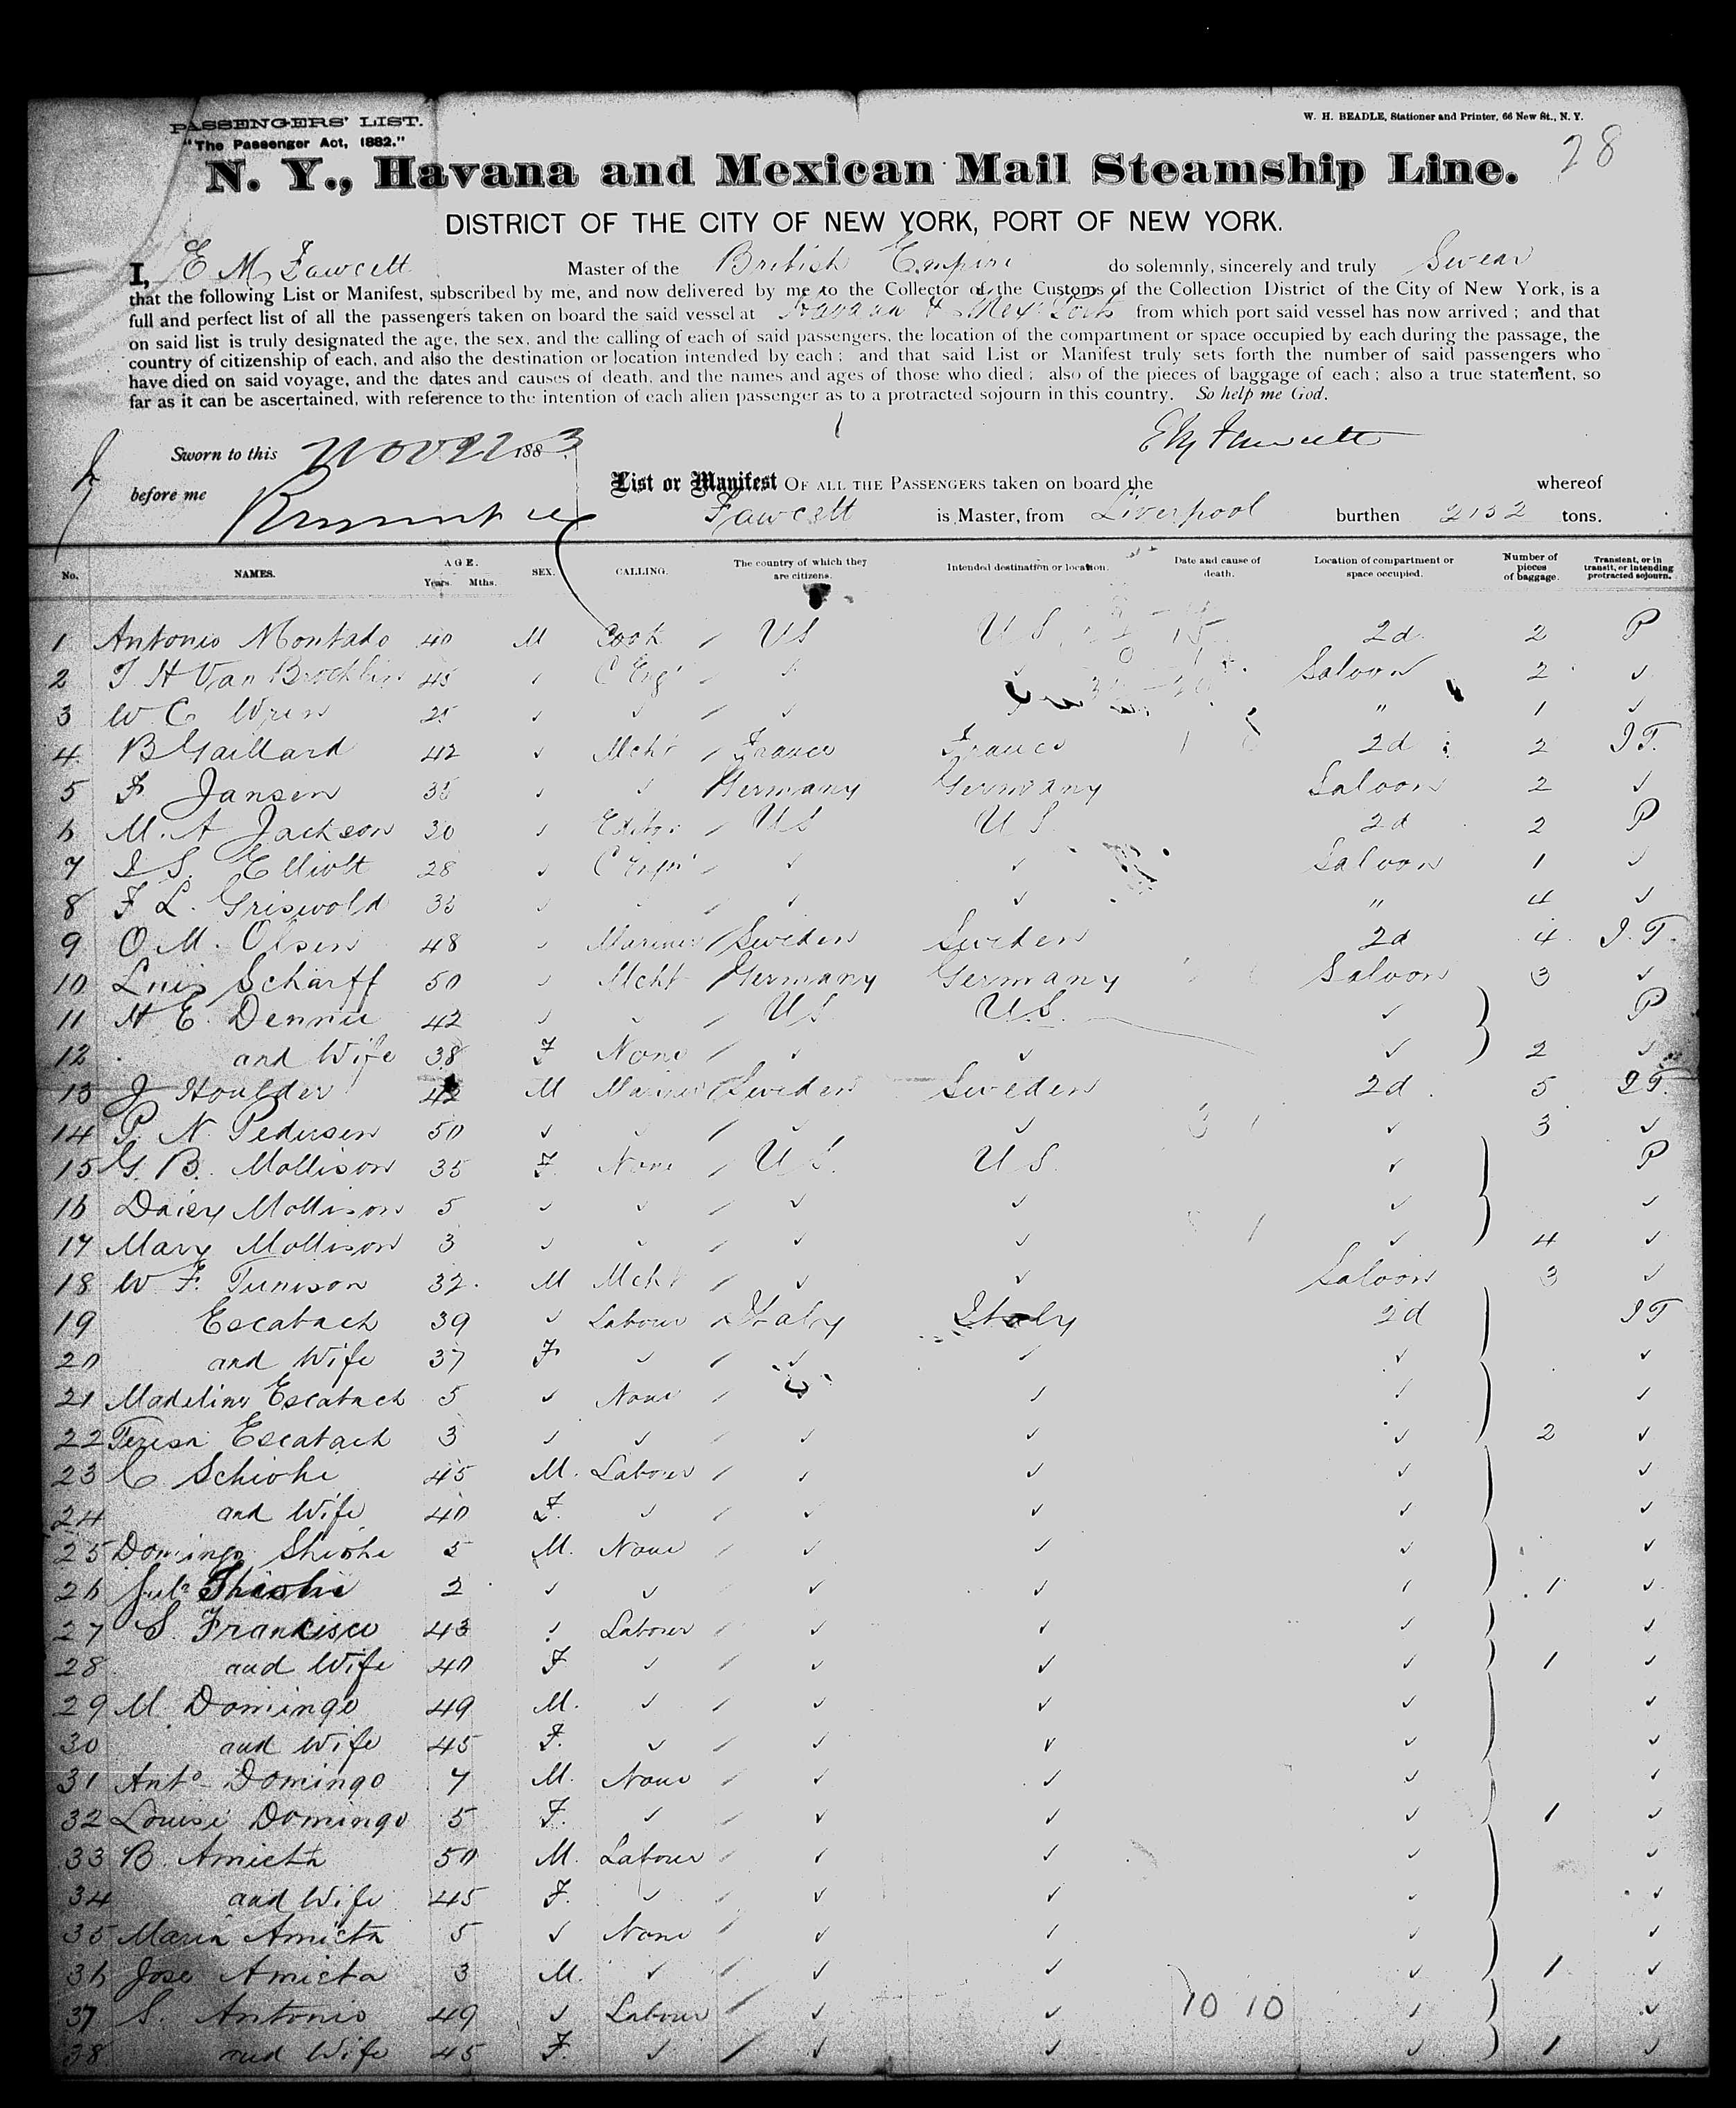 PASSENGERS' LIST.
"The Passenger Act, 1882."
W. H. BEADLE, Stationer and Printer, 66 New St., N. Y.
28
N. Y., Havana and Mexican Mail Steamship Line.
DISTRICT OF THE CITY OF NEW YORK, PORT OF NEW YORK.
I, E M Fawcett Master of the British Empire do solemnly, sincerely and truly Swear
that the following List or Manifest, subscribed by me, and now delivered by me to the Collector of the Customs of the Collection District of the City of New York, is a
full and perfect list of all the passengers taken on board the said vessel at Havana & Mex Ports from which port said vessel has now arrived; and that
on said list is truly designated the age, the sex, and the calling of each of said passengers, the location of the compartment or space occupied by each during the passage, the
country of citizenship of each, and also the destination or location intended by each; and that said List or Manifest truly sets forth the number of said passengers who
have died on said voyage, and the dates and causes of death, and the names and ages of those who died; also of the pieces of baggage of each; also a true statement, so
far as it can be ascertained, with reference to the intention of each alien passenger as to a protracted sojourn in this country. So help me God.
Sworn to this Nov 22 1883
E M Fawcett
before me
List or Manifest OF ALL THE PASSENGERS taken on board the whereof
Fawcett is Master, from Liverpool burthen 2132 tons.
No. NAMES. AGE. Years. Mths. SEX. CALLING. The country of which they are citizens. Intended destination or location. Date and cause of death. Location of compartment or space occupied. Number of pieces of baggage. Transient, or in transit, or intending protracted sojourn.
1 Antonio Montado 40 M Cook / US US 2d 2 P
2 T H Van Brocklin 45 ✓ C Eng / ✓ ✓ Saloon 2 ✓
3 W C Wren 25 ✓ ✓ / ✓ ✓ " 1 ✓
4 B Gaillard 42 ✓ Mcht / France France 2d 2 I T.
5 F Jansen 35 ✓ ✓ Germany Germany Saloon 2 ✓
6 M. A Jackson 30 ✓ Editor / US US 2d 2 P
7 I S. Elliott 28 ✓ C Engr / ✓ ✓ Saloon 1 ✓
8 F L. Griswold 33 ✓ ✓ / ✓ ✓ " 4 ✓
9 O M. Olsen 48 ✓ Mariner / Sweden Sweden 2d 4 I. T.
10 Luis Scharff 50 ✓ Mcht / Germany Germany Saloon 3 ✓
11 H E. Dennie 42 ✓ ✓ / US US. ✓ P
12 and Wife 38 F None / ✓ ✓ ✓ 2 ✓
13 J Houlder 42 M Mariner / Sweden Sweden 2d 5 I T.
14 P. N. Pedersen 50 ✓ ✓ / ✓ ✓ ✓ 3 ✓
15 G. B. Mollison 35 F. None / US. US. ✓ P
16 Daisy Mollison 5 ✓ ✓ / ✓ ✓ ✓ ✓
17 Mary Mollison 3 ✓ ✓ / ✓ ✓ ✓ 4 ✓
18 W F. Tunison 32. M Mcht / ✓ ✓ Saloon 3 ✓
19 Escabach 39 ✓ Labour / Italy Italy 2d I T
20 and Wife 37 F ✓ / ✓ ✓ ✓ ✓
21 Madeline Escabach 5 ✓ None / ✓ ✓ ✓
22 Teresa Escabach 3 ✓ ✓ / ✓ ✓ ✓ 2 ✓
23 C Schiohi 45 M. Labour / ✓ ✓ ✓ ✓
24 and Wife 40 F. ✓ / ✓ ✓ ✓ ✓
25 Domingo Shiohi 5 M. None / ✓ ✓ ✓ ✓
26 2 ✓ ✓ ✓ ✓ ✓ 1 ✓
27 S. Francisco 43 ✓ Labour / ✓ ✓ ✓ ✓
28 and Wife 40 F ✓ / ✓ ✓ ✓ 1 ✓
29 M. Domingo 49 M. ✓ / ✓ ✓ ✓ ✓
30 and Wife 45 F. ✓ / ✓ ✓ ✓ ✓
31 Anto Domingo 7 M. None / ✓ ✓ ✓ ✓
32 Louise Domingo 5 F. ✓ / ✓ ✓ ✓ 1 ✓
33 B. Amicta 50 M. Labour / ✓ ✓ ✓ ✓
34 and Wife 45 F. ✓ / ✓ ✓ ✓ ✓
35 Maria Amicta 5 ✓ None / ✓ ✓ ✓ ✓
36 Jose Amicta 3 M. ✓ / ✓ ✓ ✓ 1 ✓
37 S. Antonio 49 ✓ Labour / ✓ ✓ 10 10 ✓ ✓
38 and Wife 45 F. ✓ / ✓ ✓ ✓ 1 ✓